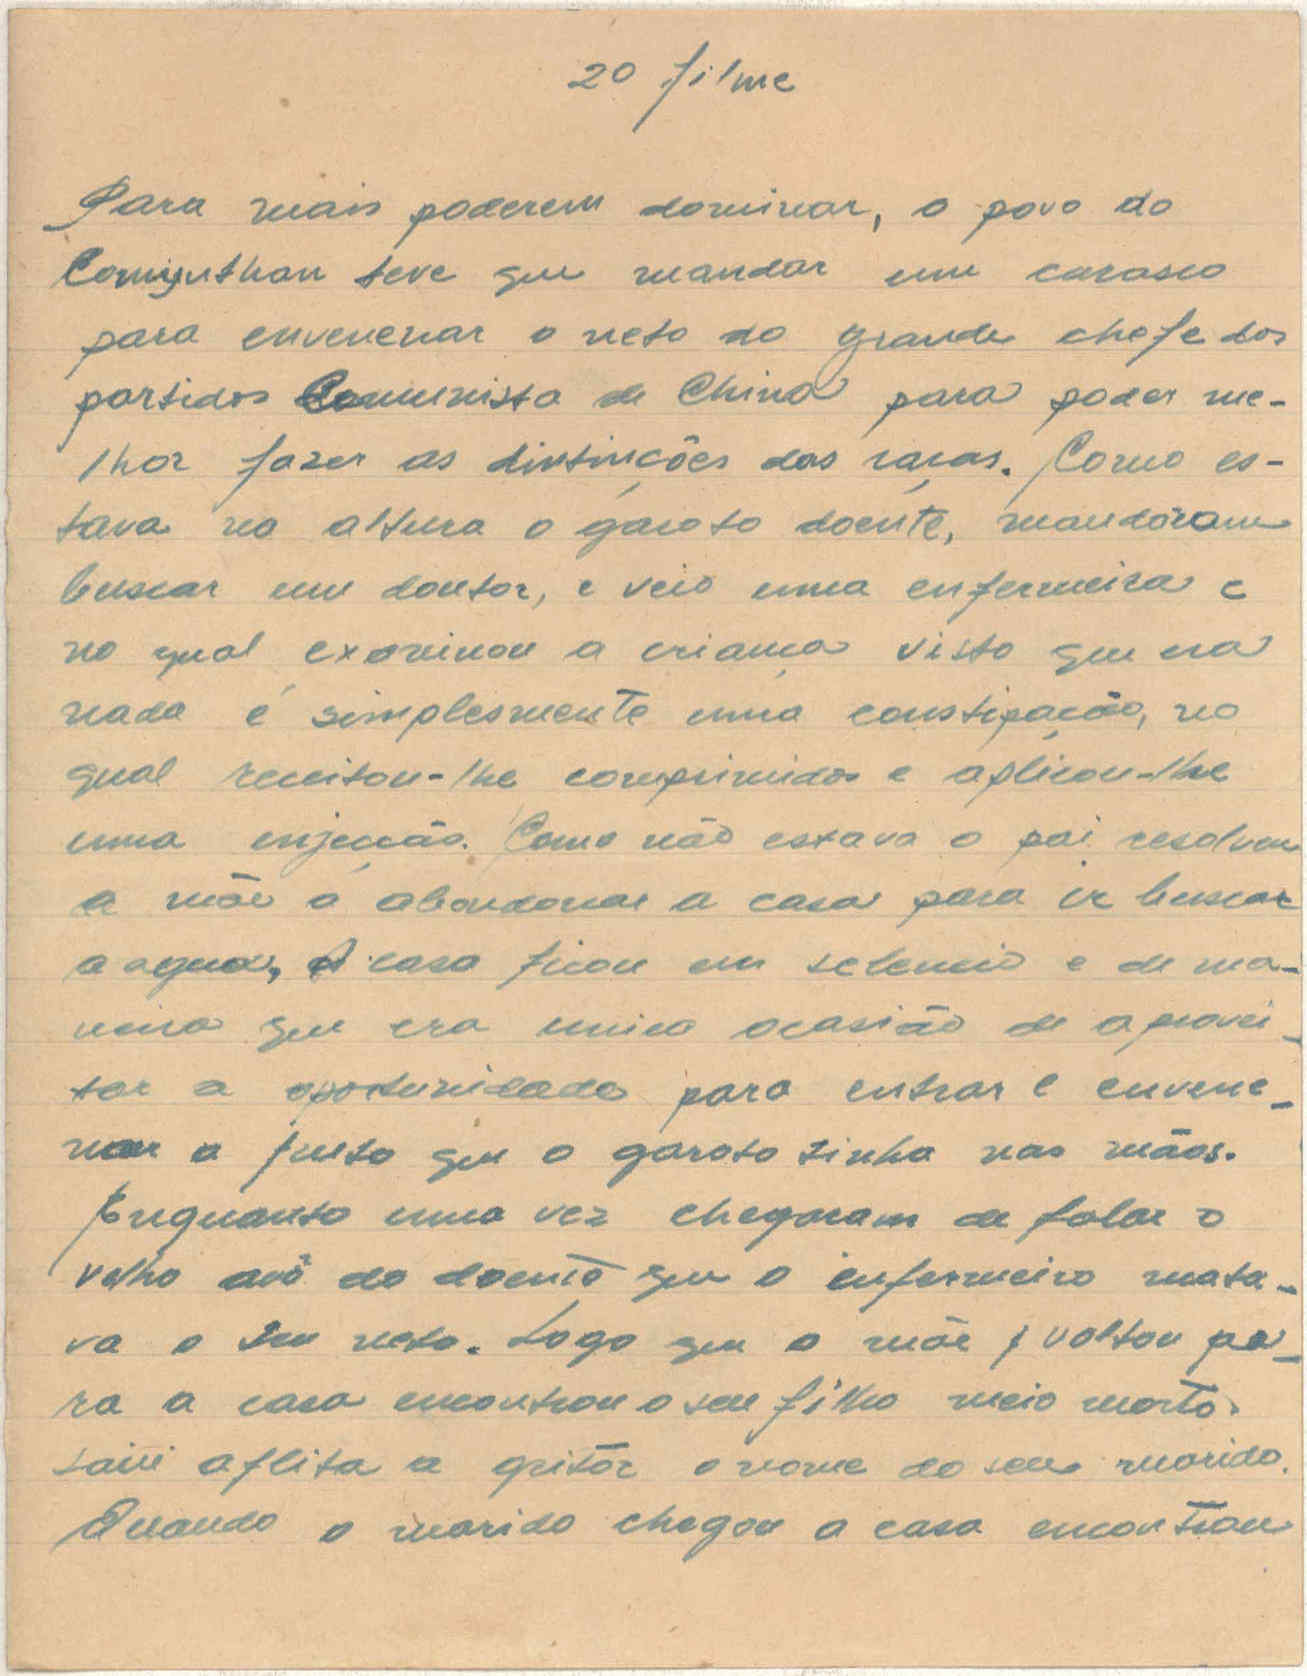 20 filme
Para mais poderem dominar, o povo do
teve que mandar um carasco
para envenenar o neto do grande chefe dos
partidos Comunista de China para poder me-
lhor fazer as distinções das raças. Como es-
tava na altura o garoto doente, mandaram
buscar um doutor, e veio uma enfermeira e
no qual examinou a criança visto que era
nada é simplesmente uma constipação, no
qual receitou-lhe comprimidos e aplicou-lhe
uma injecção. Como não estava o pai resolveu
a mãe a abandonar a casa para ir buscar
a agua, A casa ficou em selencio e de ma-
neira que era unica ocasião de aprovei-
tar a oportunidade para entrar e envene-
nar a fruto que o garoto tinha nas mãos.
Enquanto uma vez chegaram de falar o
velho avô do doente que o enfermeiro mata-
va o seu neto. Logo que a mãe voltou pa-
ra a casa encontrou o seu filho meio morto.
saiu aflita a gritar o nome do seu marido.
Quando o marido chegou a casa encontrou